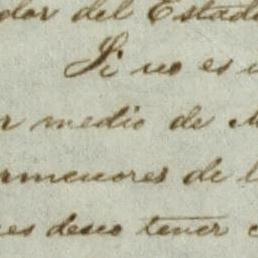 dor del Estado
Si no es
medio de
menores de
es deseo tener